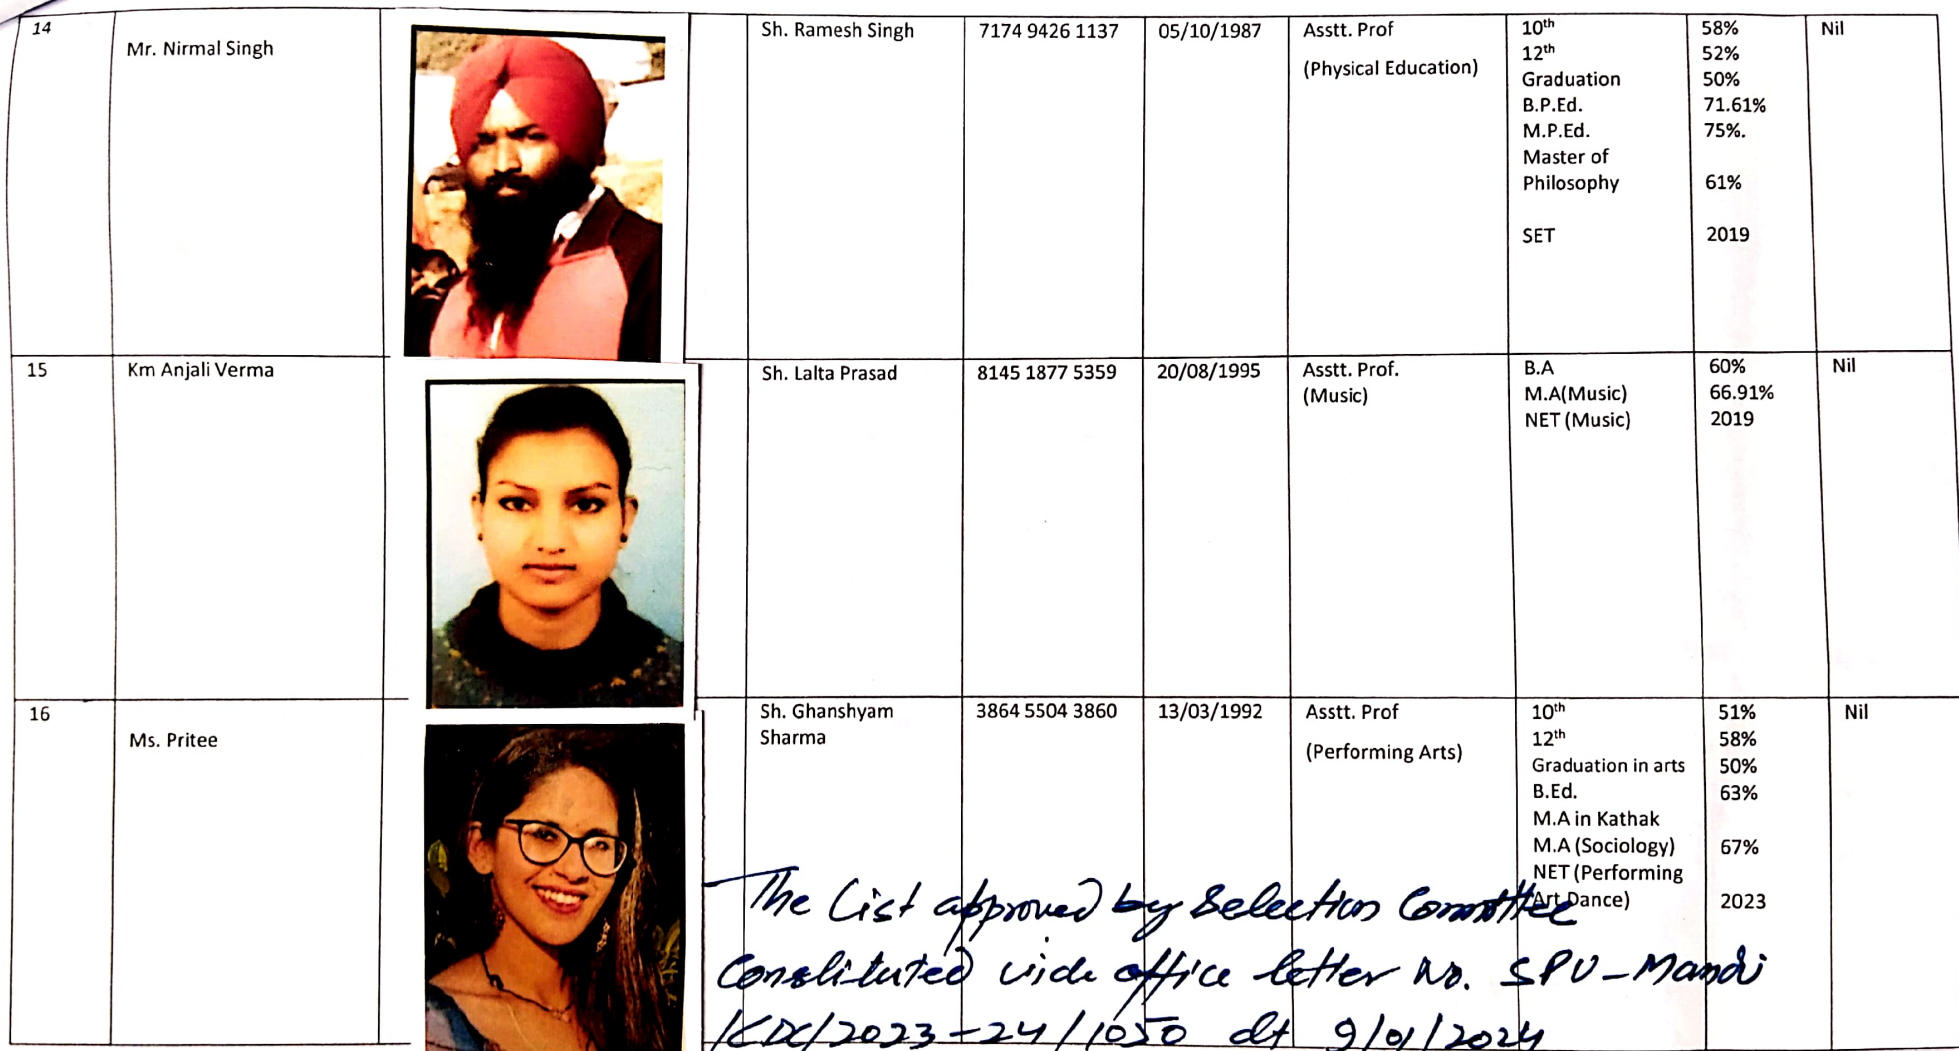 14
Mr. Nirmal Singh
Sh. Ramesh Singh
7174 9426 1137
05/10/1987
Asstt. Prof
(Physical Education)
10th 58%
12th 52%
Graduation 50%
B.P.Ed. 71.61%
M.P.Ed. 75%.
Master of
Philosophy 61%
SET 2019
Nil
15
Km Anjali Verma
Sh. Lalta Prasad
8145 1877 5359
20/08/1995
Asstt. Prof.
(Music)
B.A 60%
M.A(Music) 66.91%
NET (Music) 2019
Nil
16
Ms. Pritee
Sh. Ghanshyam
Sharma
3864 5504 3860
13/03/1992
Asstt. Prof
(Performing Arts)
10th 51%
12th 58%
Graduation in arts 50%
B.Ed. 63%
M.A in Kathak
M.A (Sociology) 67%
NET (Performing
Art Dance) 2023
Nil
The List approved by Selection Committee
Constituted vide office letter No. SPU-Mandi
/CDC/2023-24/1050 dt 9/01/2024